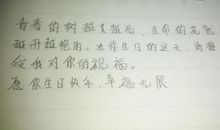 青春的树越长越高，生命的花就
越开越艳，在你生日的这天，请接
受我对你的祝福。
愿你生日快乐，幸福无限